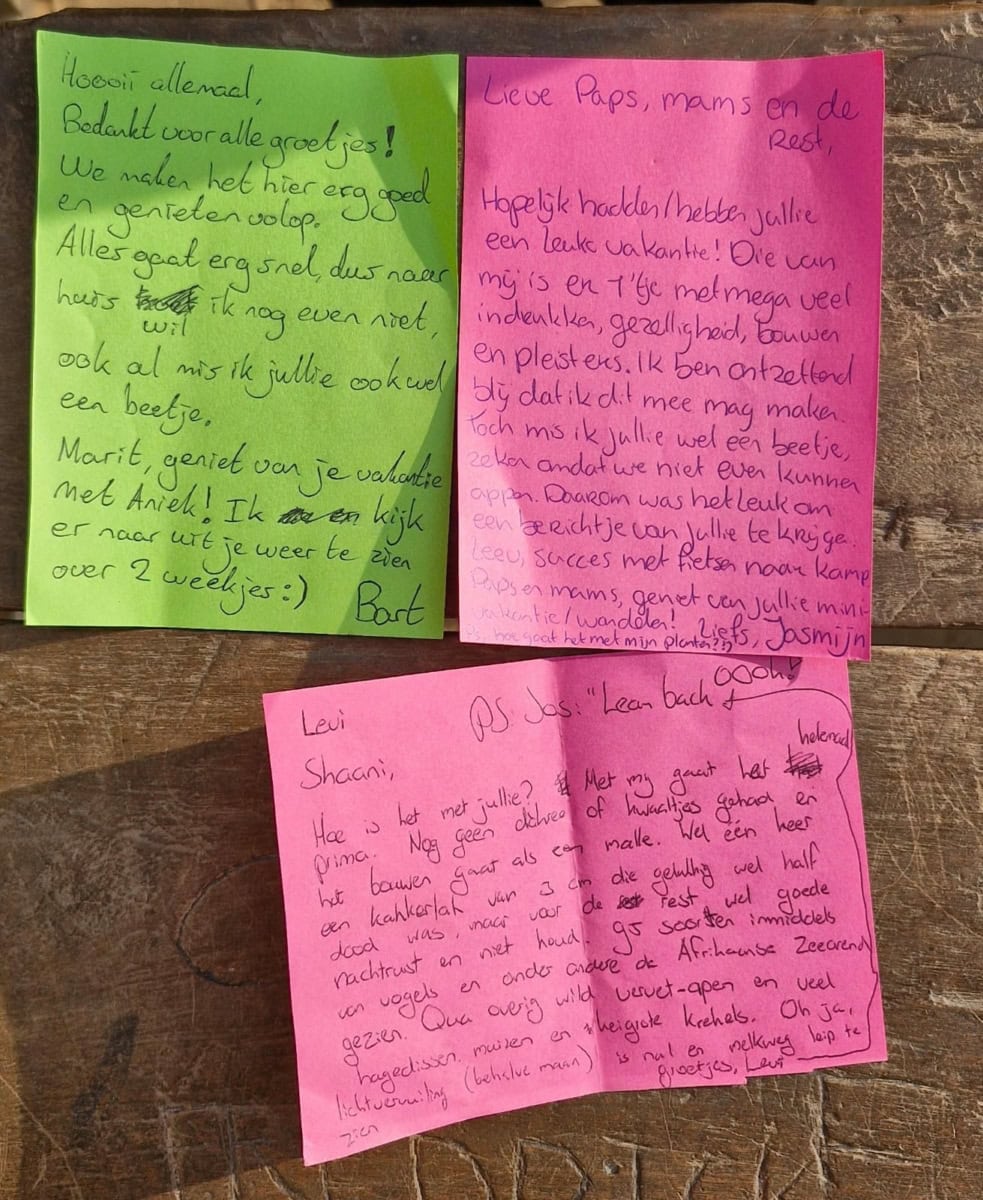 Hoooii allemaal,
Bedankt voor alle groetjes!
We maken het hier erg goed
en genieten volop.
Alles gaat erg snel, dus naar
huis wil ik nog even niet,
ook al mis ik jullie ook wel
een beetje.
Marit, geniet van je vakantie
met Aniek! Ik kijk
er naar uit je weer te zien
over 2 weekjes :)
Bart
Lieve Paps, mams en de
Rest,
Hopelijk hadden/hebben jullie
een leuke vakantie! Die van
mij is er 1'tje met mega veel
indrukken, gezelligheid, bouwen
en pleisters. Ik ben ontzettend
blij dat ik dit mee mag maken.
Toch mis ik jullie wel een beetje,
zeker omdat we niet even kunnen
appen. Daarom was het leuk om
een berichtje van jullie te krijgen.
succes met fietsen naar kamp
Paps en mams, geniet van jullie mini-
vakantie/wandelen! Liefs, Jasmijn
Ps. hoe gaat het met mijn planten??
Levi
PS. Jos: "Lean back" Oooh!
Shaani,
Hoe is het met jullie? Met mij gaat het helemaal
prima. Nog geen of kwaaltjes gehad en
het bouwen gaat als een malle. Wel één keer
een kakkerlak van 3 cm die gelukkig wel half
dood was, maar voor de rest wel goede
nachtrust en niet koud. 95 soorten inmiddels
van vogels en onder andere de Afrikaanse Zeearend
gezien. Qua overig wild vervet-apen en veel
hagedissen, muizen en grote krekels. Oh ja,
lichtvervuiling (behalve maan) is nul en melkweg te
zien
groetjes, Levi